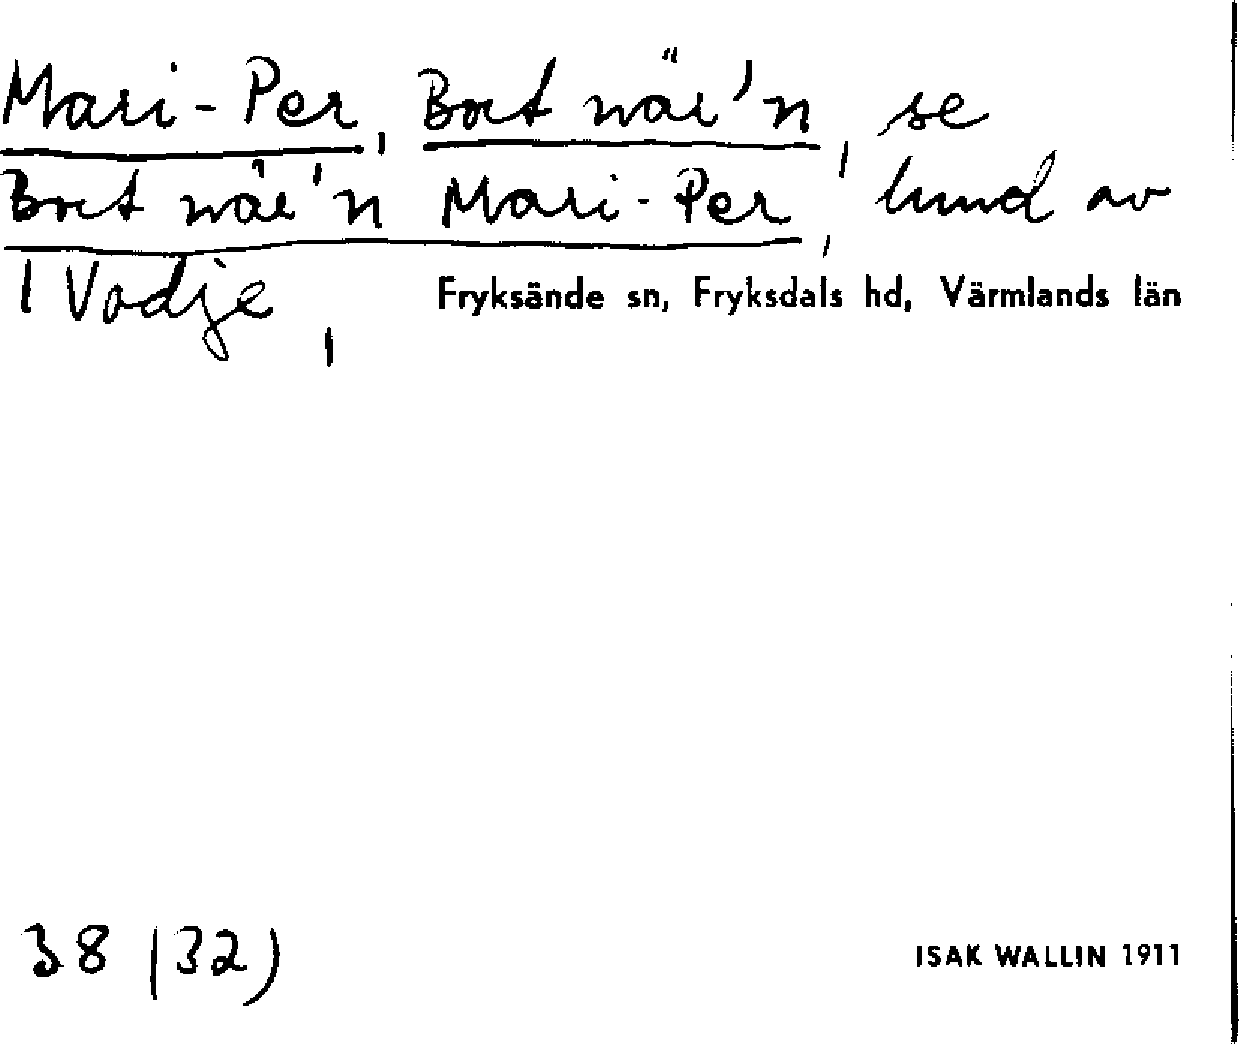 Mari-Per, Bort wär'n, se
Bort wär'n Mari-Per, lund av
Vadje, Fryksände sn, Fryksdals hd, Värmlands län
38 (32)
ISAK WALLIN 1911